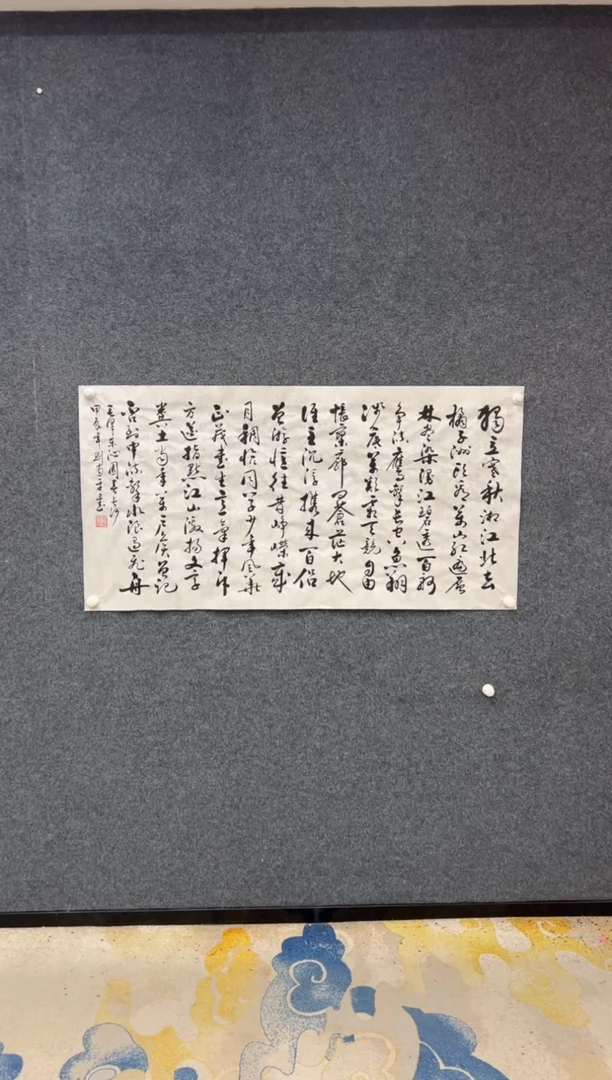 獨立寒秋湘江北去
橘子洲頭看萬山紅遍層
林盡染漫江碧透百舸
爭流鷹擊長空魚翔
淺底萬類霜天競自由
悵寥廓問蒼茫大地
誰主沉浮携來百侣
曾游憶往昔崢嶸歲
月稠恰同學少年風華
正茂書生意氣揮斥
方遒指點江山激揚文字
糞土當年萬户侯曾記
否到中流擊水浪遏飛舟
毛澤东沁園春長沙
甲辰年